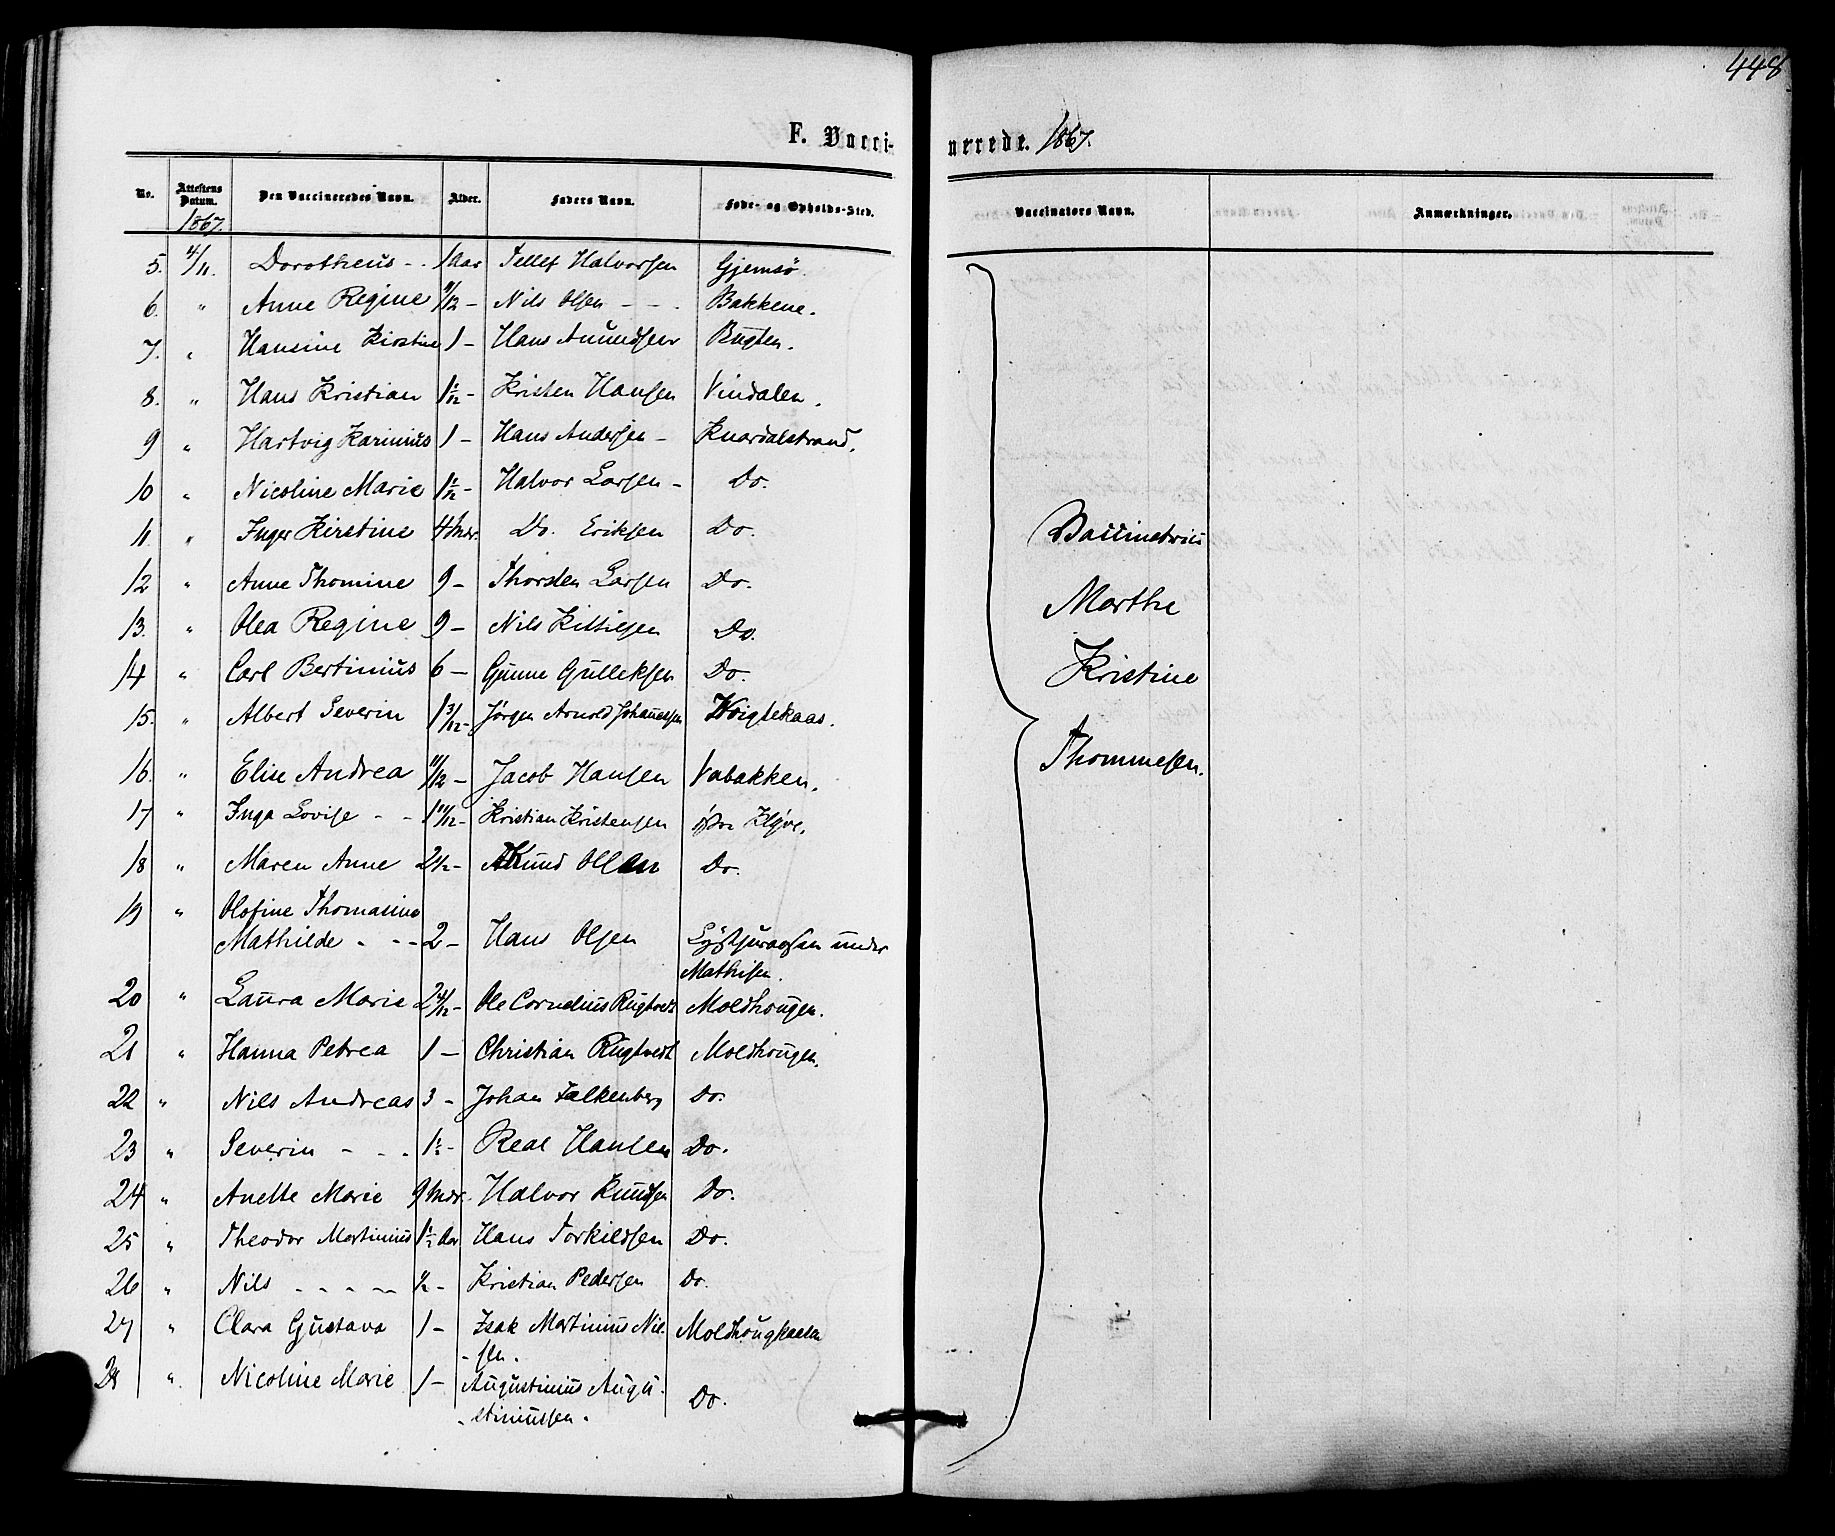 448
F. Vacci- nerede. 1867.
No. Attestens Datum. Den Vaccineredes Navn. Alder. Faders Navn. Føde- og Opholds-Sted. Vaccinators Navn. Anmærkninger.
1867.
5. 4/11. Dorotheus - - 1 Aar Tellef Halvorsen Gjemsø.
6. " Anne Regine 11/12 - Nils Olsen - - - Bakkene.
7. " Hansine Kirstine 1 - Hans Amundsen Bugten.
8. " Hans Kristian 1 1/12 - Kristen Hansen Vindalen.
9 " Hartvig Karinius 1 - Hans Andersen - Knardalstrand.
10 " Nicoline Marie 1 1/12 - Halvor Larsen - Do.
11. " Inger Kirstine 4 Mdr. Do. Eriksen Do.
12 " Anne Thomine 9 - Thorsten Larsen Do.
13. " Olea Regine 9 - Nils Kittilsen Do.
14 " Carl Bertinius 6 - Gunne Gulleksen Do.
15. " Albert Severin 1 3/12 - Jørgen Arnold Johannessen Voigtekaas.
16. " Elise Andrea 11/12 - Jacob Hansen Vabakken.
17 " Inga Lovise - - 1 11/12 - Kristian Kristensen Klyve.
18 " Maren Anne 2 1/2 - Olsen Do.
19 " Olofine Thomasine
Mathilde - - - 2 - Hans Olsen under
Mathisen.
20 " Laura Marie 2 4/12 - Ole Cornelius Rugtvedt Moldhougen.
21 " Hanna Petrea 1 - Christian Rugtvedt Moldhougen.
22 " Nils Andreas 3 - Johan Falkenberg Do.
23 " Severin - - - 1 1/2 - Real Hansen Do.
24 " Anette Marie 9 Mdr. Halvor Knudsen Do.
25 " Theodor Martinius 1 1/2 Aar Hans Torkildsen Do.
26 " Nils - - - - - 1/2 - Kristian Pedersen Do.
27 " Clara Gustava 1 - Isak Martinius Niel-
-sen. Moldhougkaasa
28 " Nicoline Marie 1 - Augustinius Augu-
-stiniussen. Do.
Vaccinatrice
Marthe
Kristine
Thommesen.